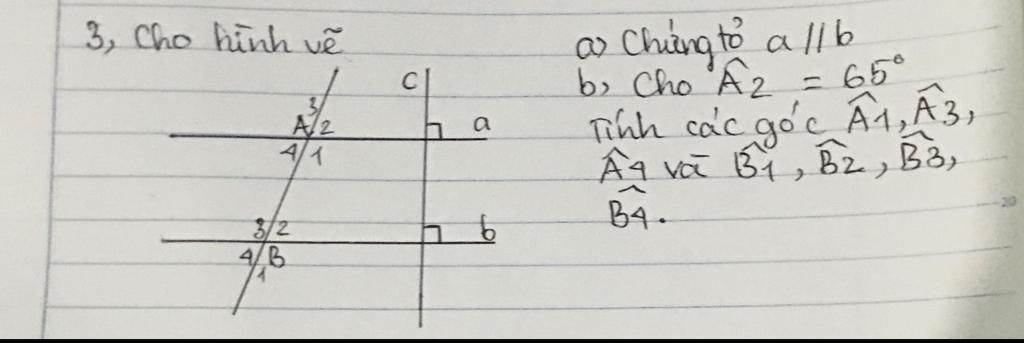 3, Cho hình vẽ
a) Chứng tỏ a // b
b, Cho Â2 = 65°
Tính các góc Â1, Â3,
Â4 và B̂1, B̂2, B̂3,
B̂4.
c
3
A 2
a
4 1
3 2
b
4 B
1
20